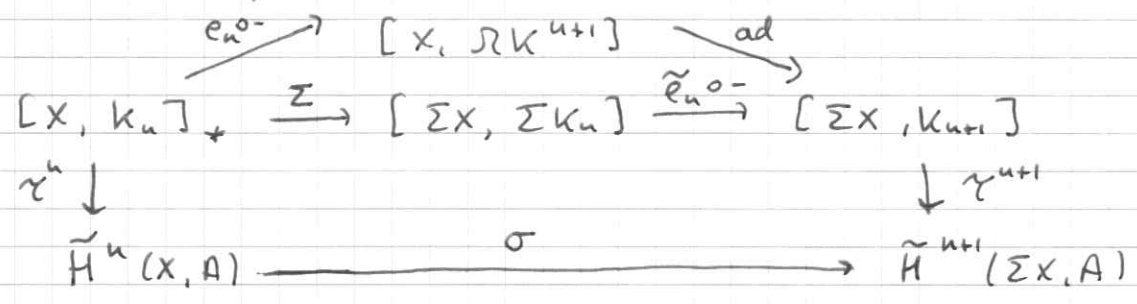 eₙ∘- [X, ΩKⁿ⁺¹] ad
[X, Kₙ]⁎ Σ→ [ΣX, ΣKₙ] ẽₙ∘-→ [ΣX, Kₙ₊₁]
τⁿ ↓ ↓ τⁿ⁺¹
H̃ⁿ(X, A) σ→ H̃ⁿ⁺¹(ΣX, A)